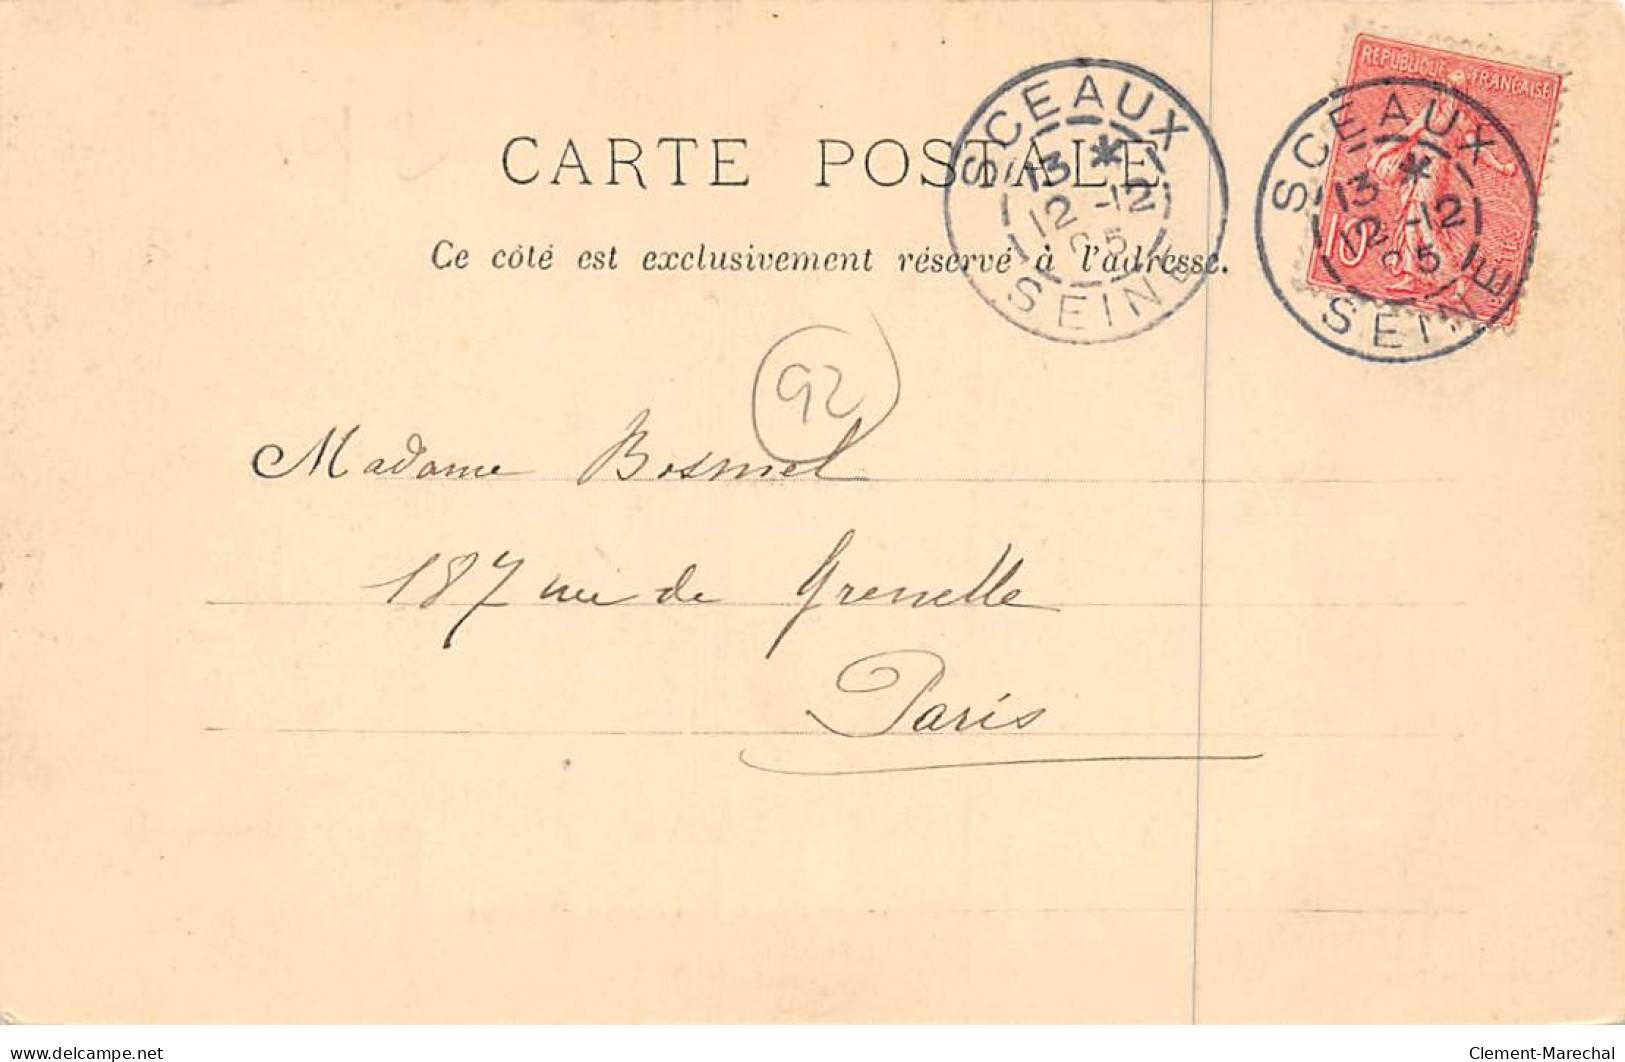 RÉPUBLIQUE FRANÇAISE
10
SCEAUX
13 *
12 -12
05
SEINE
SCEAUX
13 *
12 -12
05
SEINE
CARTE POSTALE.
Ce côté est exclusivement réservé à l'adresse.
92
Madame Bosmel
187 rue de Grenelle
Paris
delcampe.net
Clement-Marechal